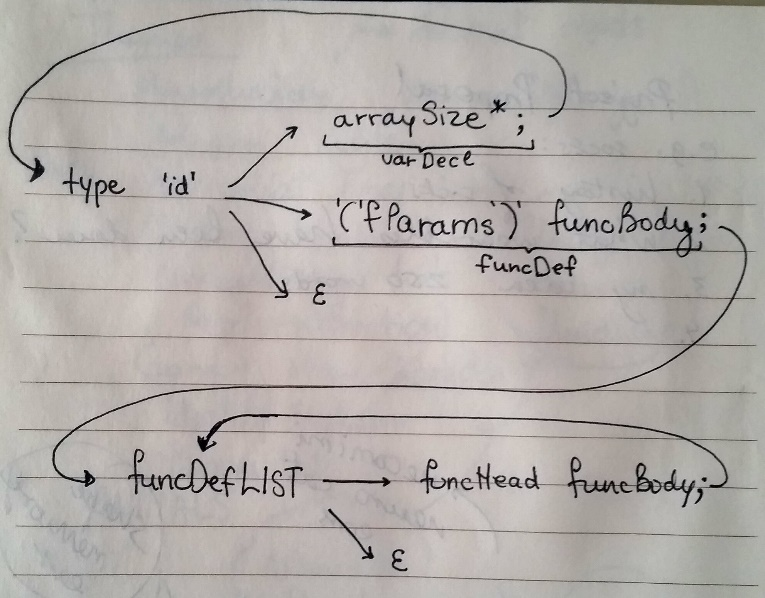 arraySize*;
varDecl
type 'id'
'('fParams')' funcBody;
funcDef
ε
funcDefLIST funcHead funcBody;
ε